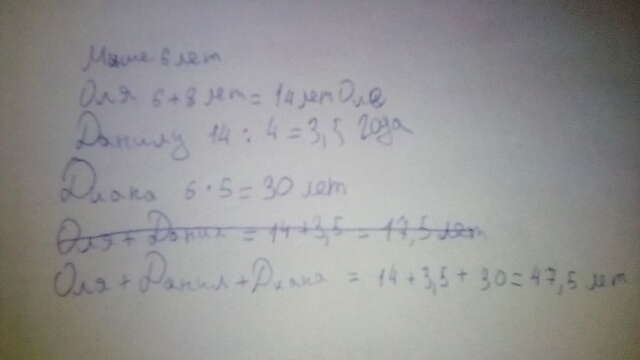 Маше 6 лет
Оля 6+8 лет = 14 лет Оле
Данилу 14 : 4 = 3,5 года
Диана 6 · 5 = 30 лет
Оля + Данил = 14+3,5 = 17,5 лет
Оля + Данил + Диана = 14 + 3,5 + 30 = 47,5 лет